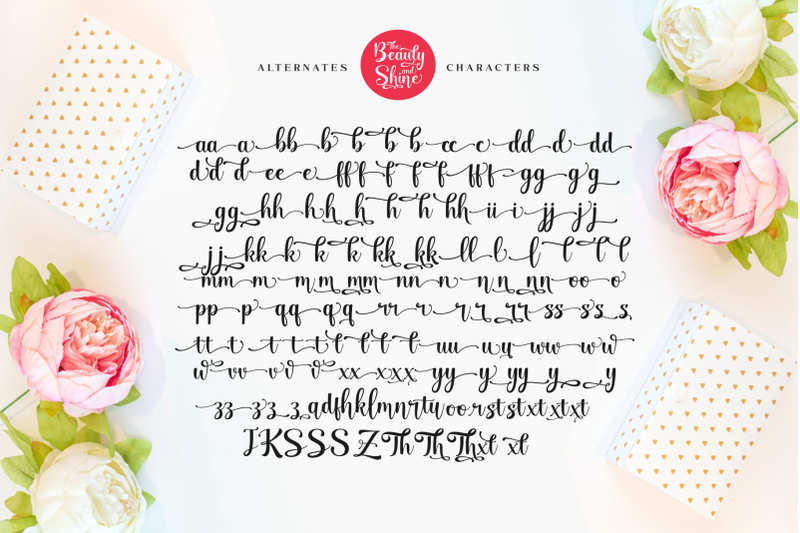 The
Beauty
and
Shine
ALTERNATES CHARACTERS
aa a bb b b b b cc c dd d dd
d d d ee e ff f f f f ff gg g g
gg hh h h h h hh ii i jj j j
jj kk k k k kk kk ll l l l l l
mm m m m mm nn n n n nn oo o
pp p p qq q q rr r r r rr ss s s
tt t t t t t t t t uu u u ww w w
w vv v v v xx x xx yy y yy y y
zz z z z adfhklmnrtuvoorststxtxtxt
JKSSSZThThThxtxt